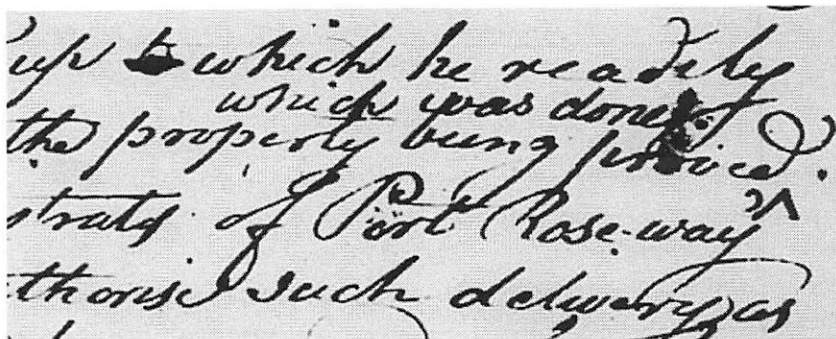 up to which he readily
which was done
the property being proved.
strates of Port Rose-way
thorise such delivery as